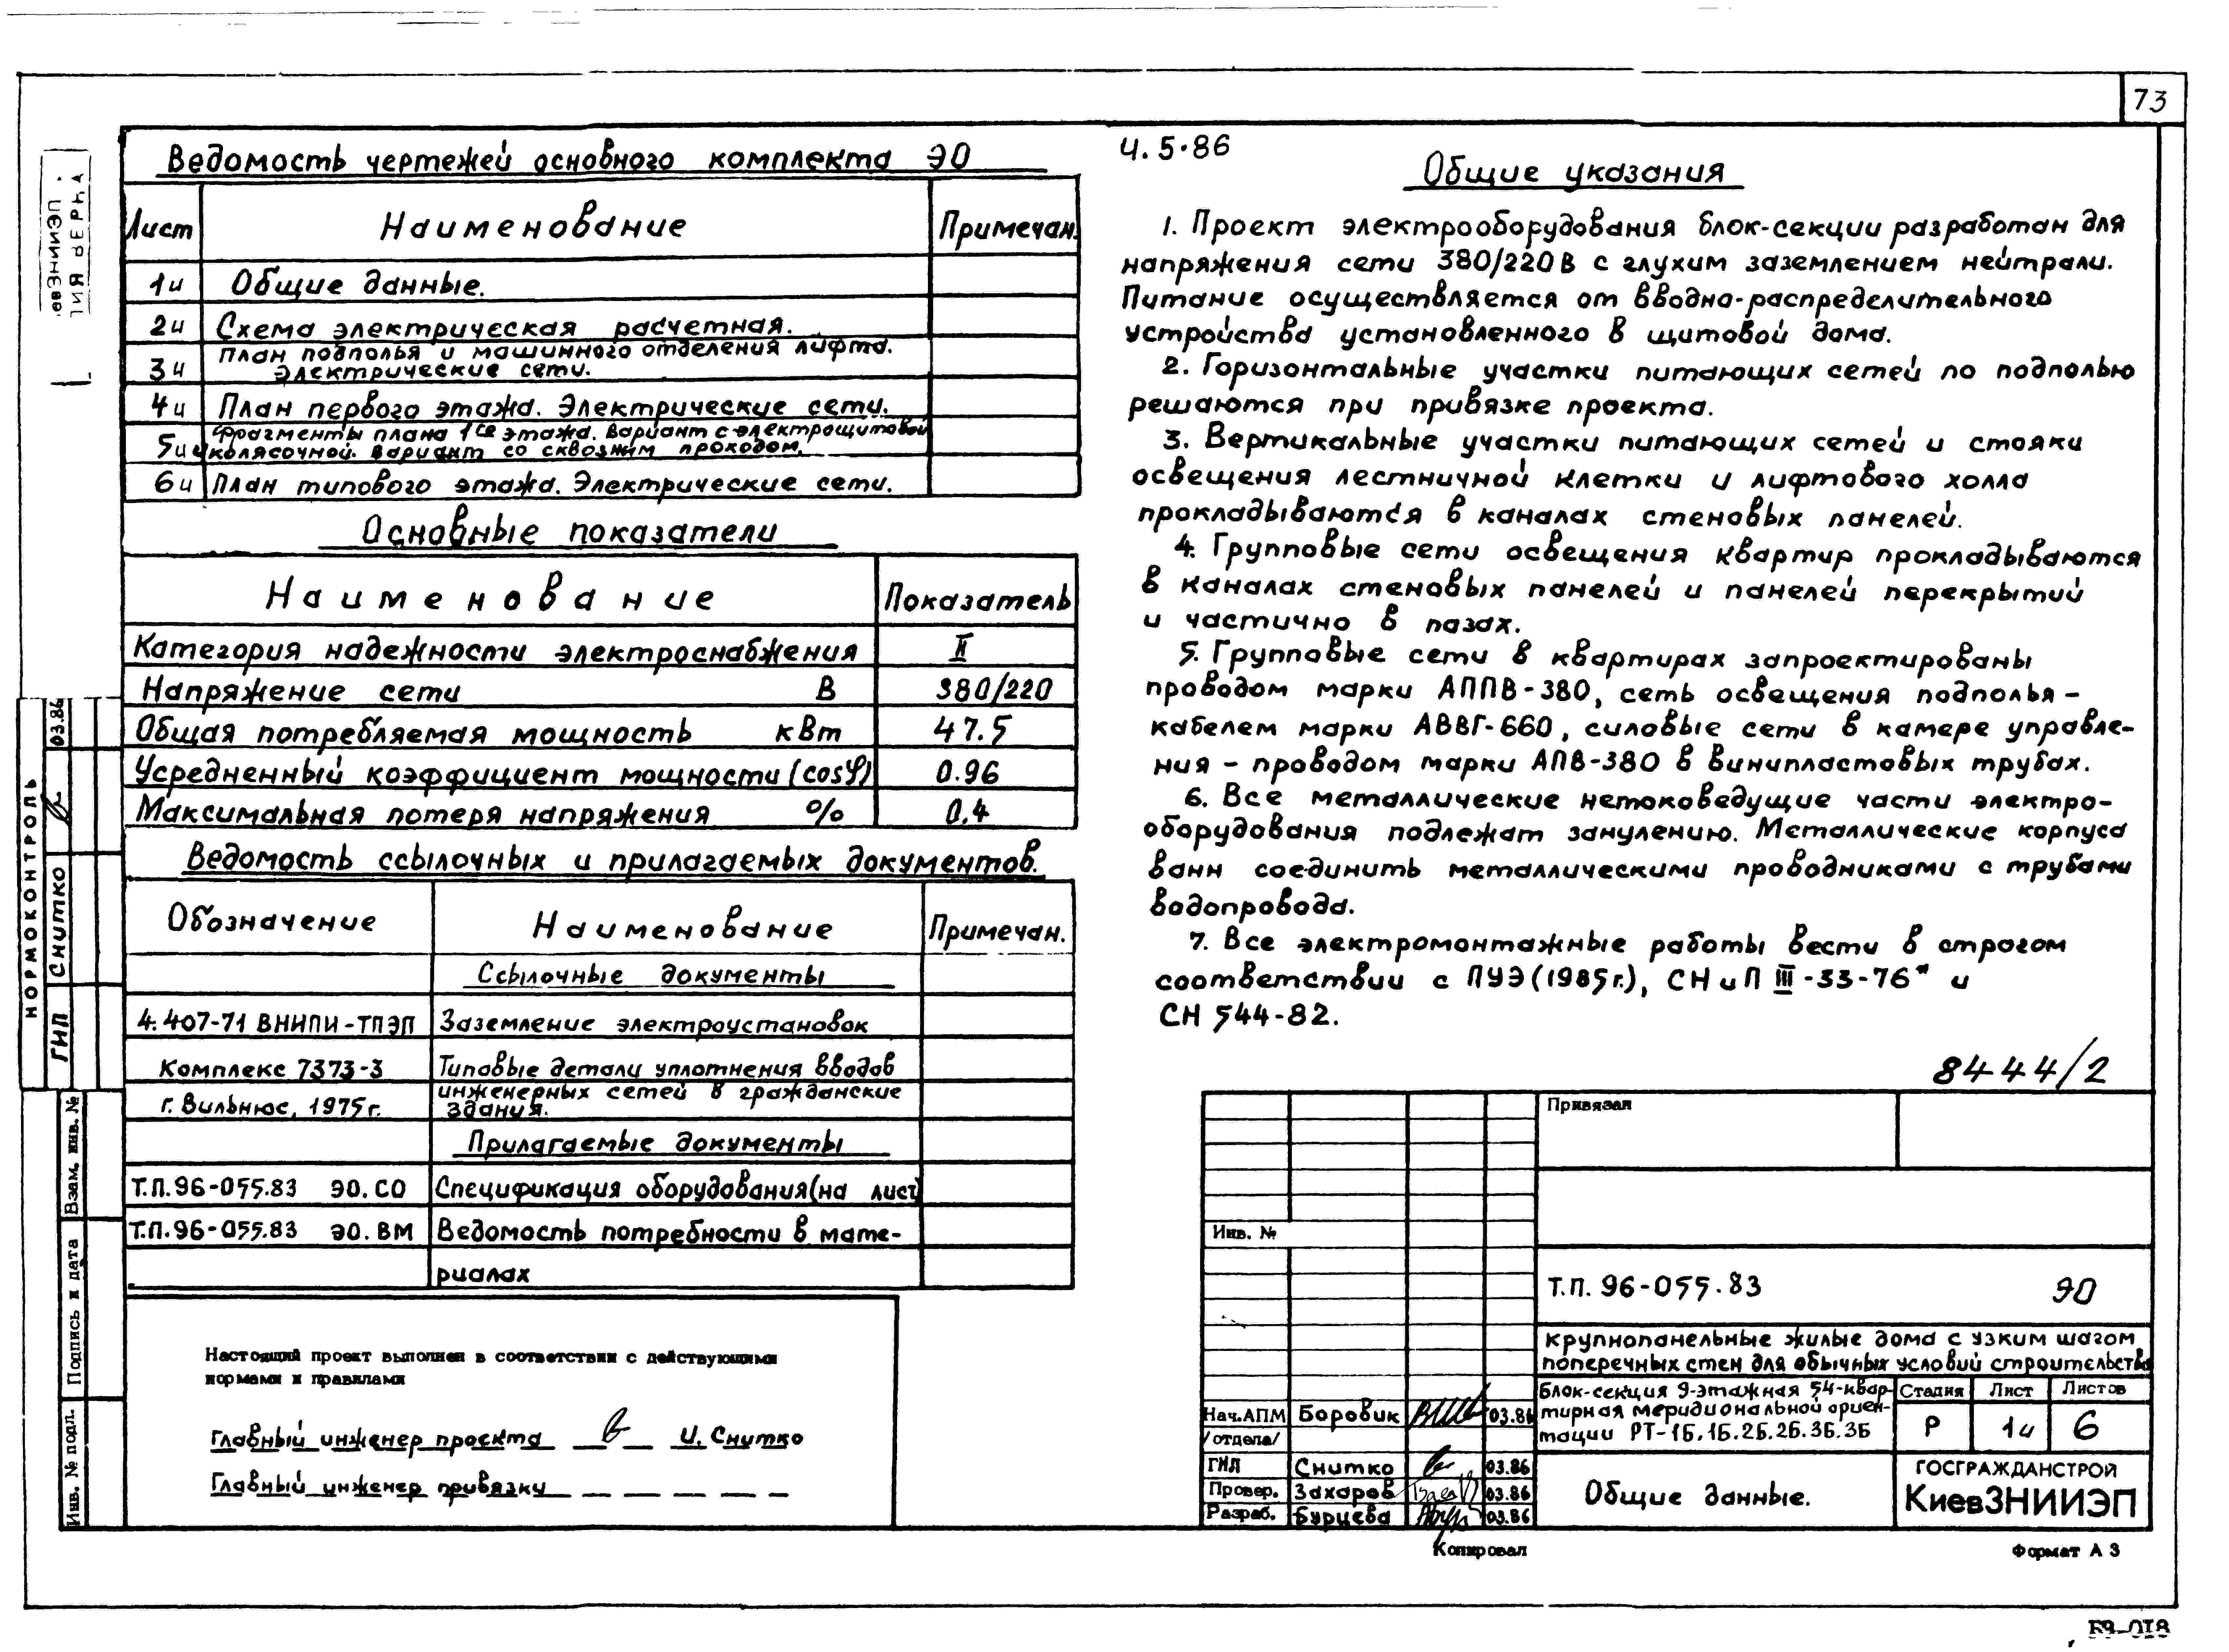 73
Ч.5.86
Ведомость чертежей основного комплекта ЭО
Лист Наименование Примечан.
1и Общие данные.
2и Схема электрическая расчетная.
3и План подполья и машинного отделения лифта.
Электрические сети.
4и План первого этажа. Электрические сети.
5и Фрагменты плана 1го этажа. Вариант с электрощитовой
и колясочной. Вариант со сквозным проходом.
6и План типового этажа. Электрические сети.
Основные показатели
Наименование Показатель
Категория надежности электроснабжения II
Напряжение сети В 380/220
Общая потребляемая мощность кВт 47.5
Усредненный коэффициент мощности (cosφ) 0.96
Максимальная потеря напряжения % 0.4
Ведомость ссылочных и прилагаемых документов.
Обозначение Наименование Примечан.
Ссылочные документы
4.407-71 ВНИПИ-ТПЭП Заземление электроустановок
Комплекс 7373-3 Типовые детали уплотнения вводов
г. Вильнюс, 1975г. инженерных сетей в гражданские
здания.
Прилагаемые документы
Т.П.96-055.83 ЭО.СО Спецификация оборудования(на лист)
Т.П.96-055.83 ЭО.ВМ Ведомость потребности в мате-
риалах
Настоящий проект выполнен в соответствии с действующими
нормами и правилами
Главный инженер проекта И. Снитко
Главный инженер привязки
Общие указания
1. Проект электрооборудования блок-секции разработан для
напряжения сети 380/220В с глухим заземлением нейтрали.
Питание осуществляется от вводно-распределительного
устройства установленного в щитовой дома.
2. Горизонтальные участки питающих сетей по подполью
решаются при привязке проекта.
3. Вертикальные участки питающих сетей и стояки
освещения лестничной клетки и лифтового холла
прокладываются в каналах стеновых панелей.
4. Групповые сети освещения квартир прокладываются
в каналах стеновых панелей и панелей перекрытий
и частично в пазах.
5. Групповые сети в квартирах запроектированы
проводом марки АППВ-380, сеть освещения подполья-
кабелем марки АВВГ-660, силовые сети в камере управле-
ния - проводом марки АПВ-380 в винипластовых трубах.
6. Все металлические нетоковедущие части электро-
оборудования подлежат занулению. Металлические корпуса
ванн соединить металлическими проводниками с трубами
водопровода.
7. Все электромонтажные работы вести в строгом
соответствии с ПУЭ(1985г.), СНиП III-33-76* и
СН 544-82.
8444/2
Привязал
Инв. №
Т.П. 96-055.83 ЭО
крупнопанельные жилые дома с узким шагом
поперечных стен для обычных условий строительства
Блок-секция 9-этажная 54-квар-
тирная меридиональной ориен-
тации РТ-1Б.1Б.2Б.2Б.3Б.3Б
Стадия Лист Листов
Р 1и 6
Нач.АПМ Боровик 03.86
/отдела/
ГИП Снитко 03.86
Провер. Захаров 03.86
Разраб. Бурцева 03.86
Общие данные.
ГОСГРАЖДАНСТРОЙ
КиевЗНИИЭП
Копировал
Формат А3
НОРМОКОНТРОЛЬ
ГИП Снитко 03.86
Взам. инв. №
Подпись и дата
Инв. № подл.